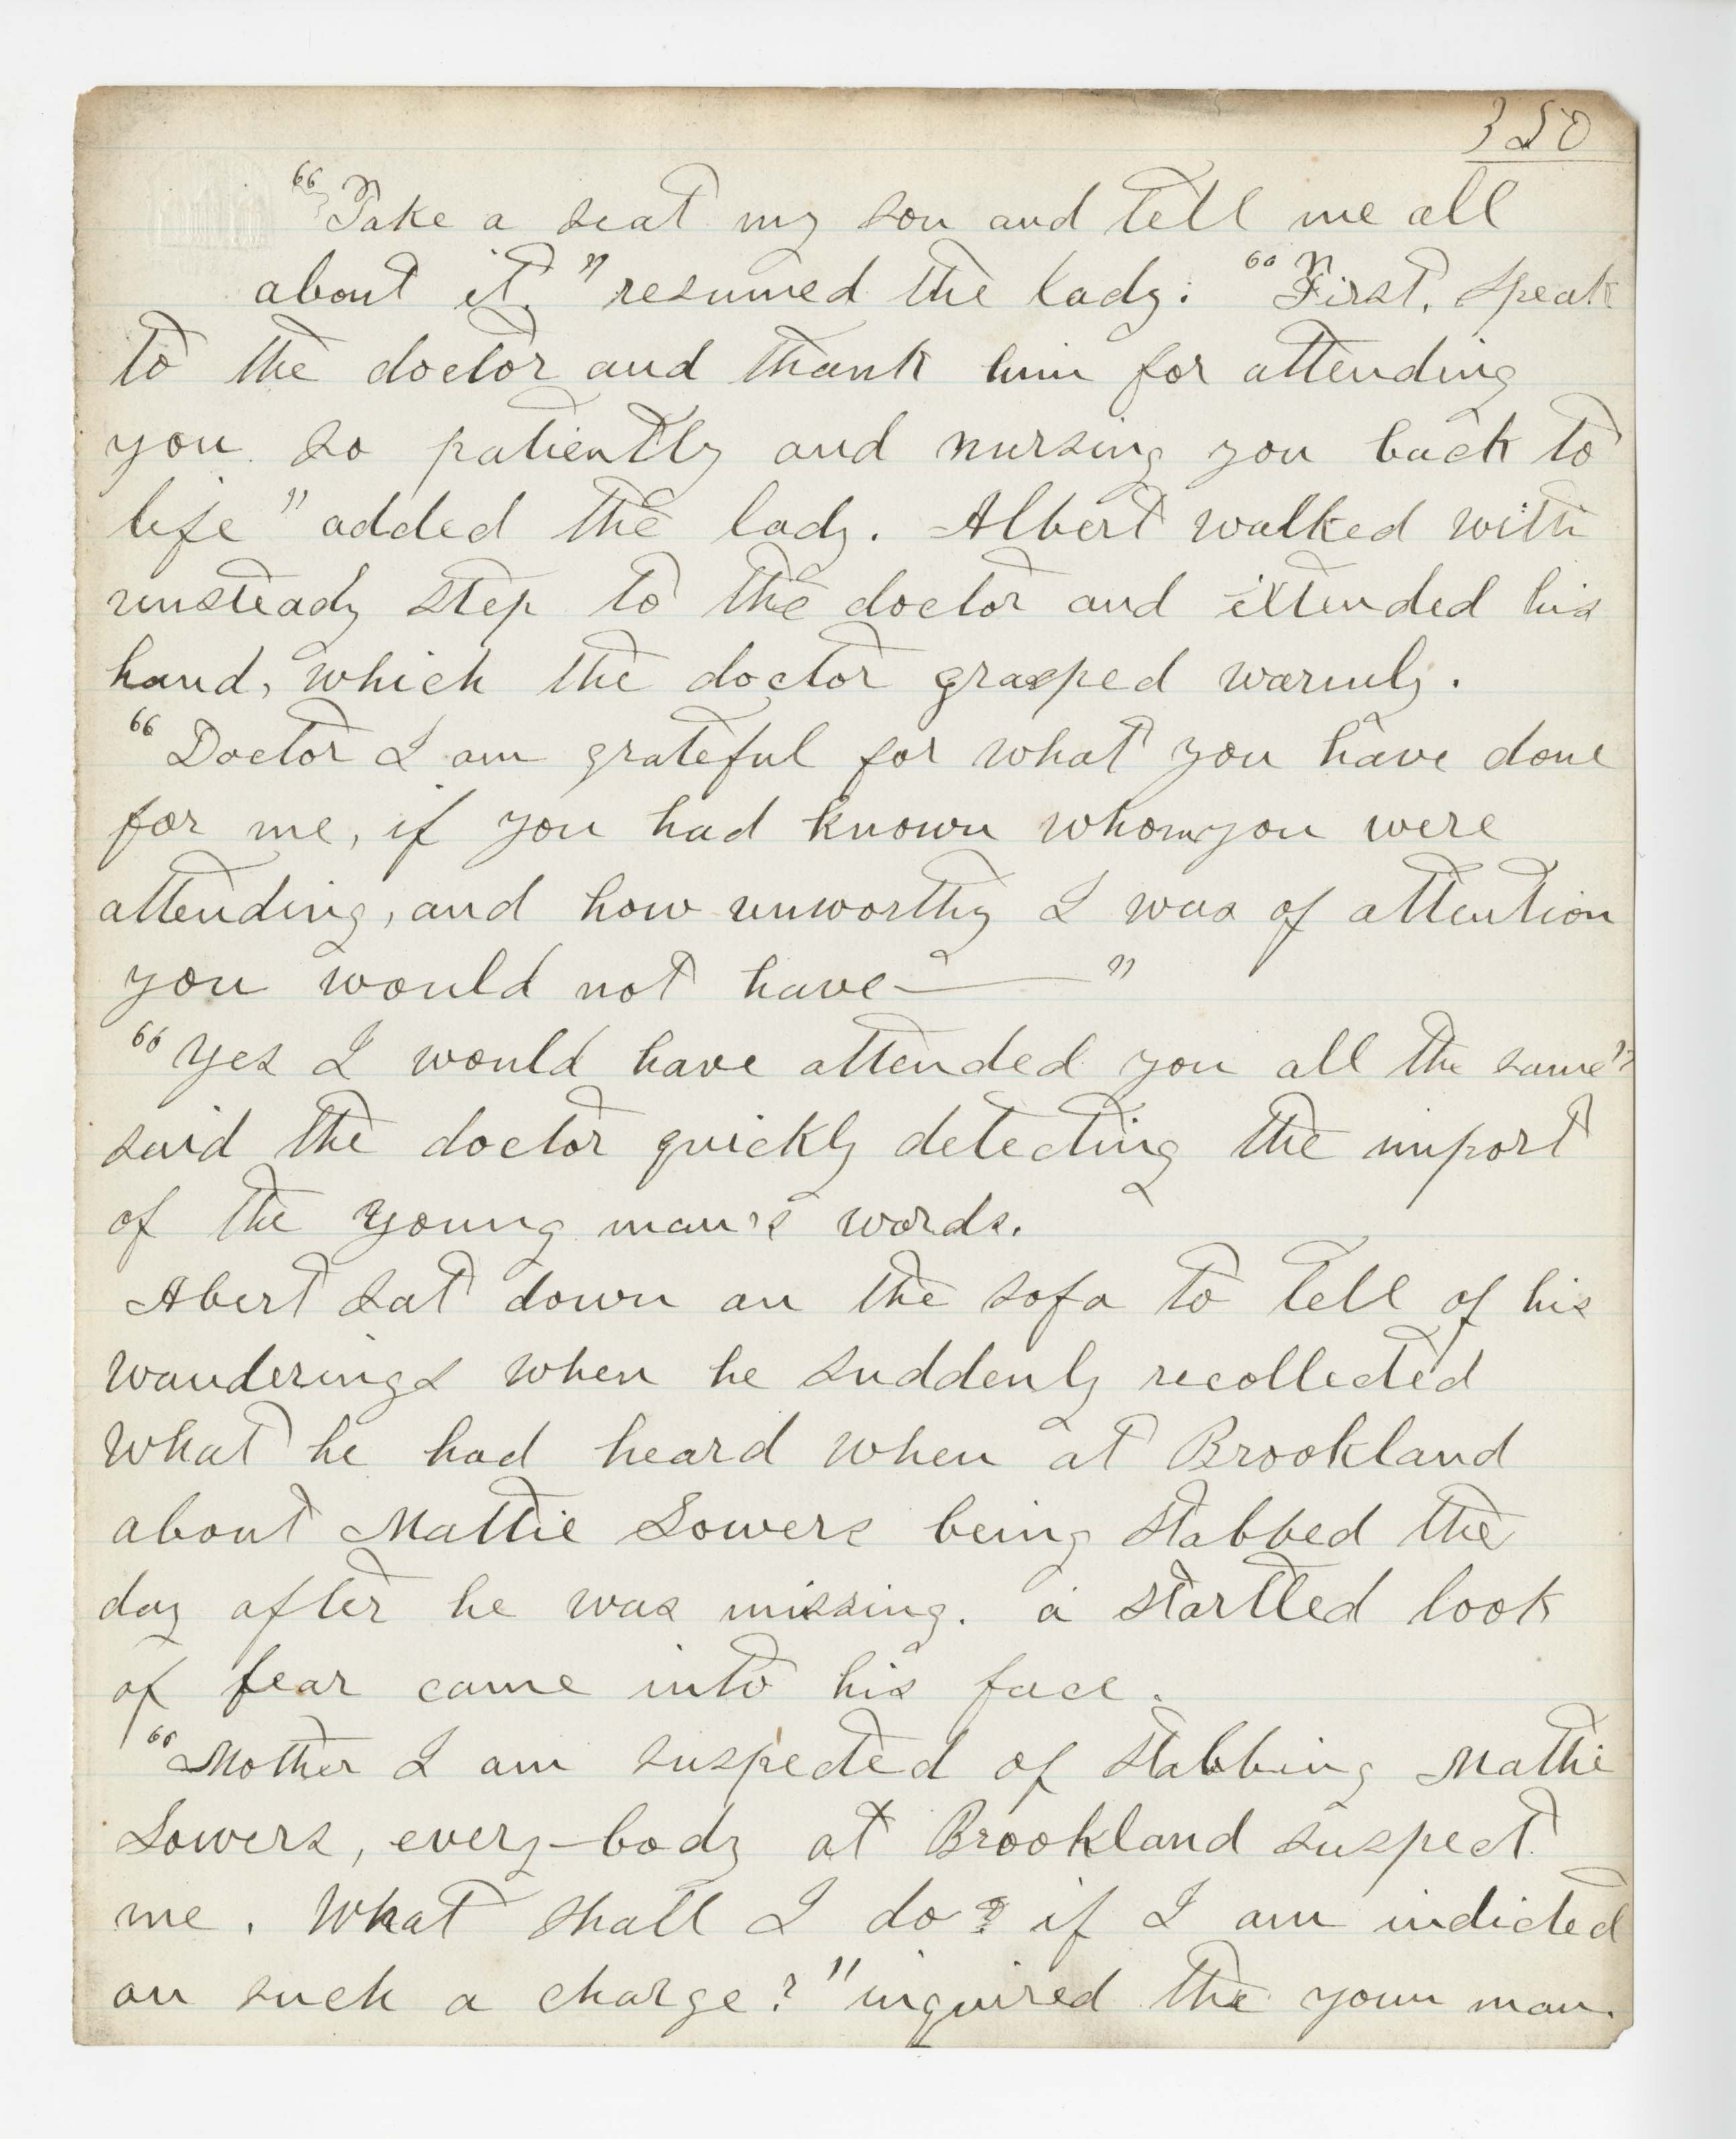 350
"Take a seat my son and tell me all
about it," resumed the lady: "First, speak
to the doctor and thank him for attending
you so patiently and nursing you back to
life" added the lady. Albert walked with
unsteady step to the doctor and extended his
hand, which the doctor grasped warmly.
"Doctor I am grateful for what you have done
for me, if you had known whom you were
attending, and how unworthy I was of attention
you would not have——"
"Yes I would have attended you all the same"
said the doctor quickly detecting the import
of the young man's words.
Abert sat down on the sofa to tell of his
wanderings when he suddenly recollected
what he had heard when at Brookland
about Mattie Sowers being stabbed the
day after he was missing. a startled look
of fear came into his face.
"Mother I am suspected of stabbing Mattie
Sowers, every-body at Brookland suspect
me. What shall I do? if I am indicted
on such a charge?" inquired the youn man.